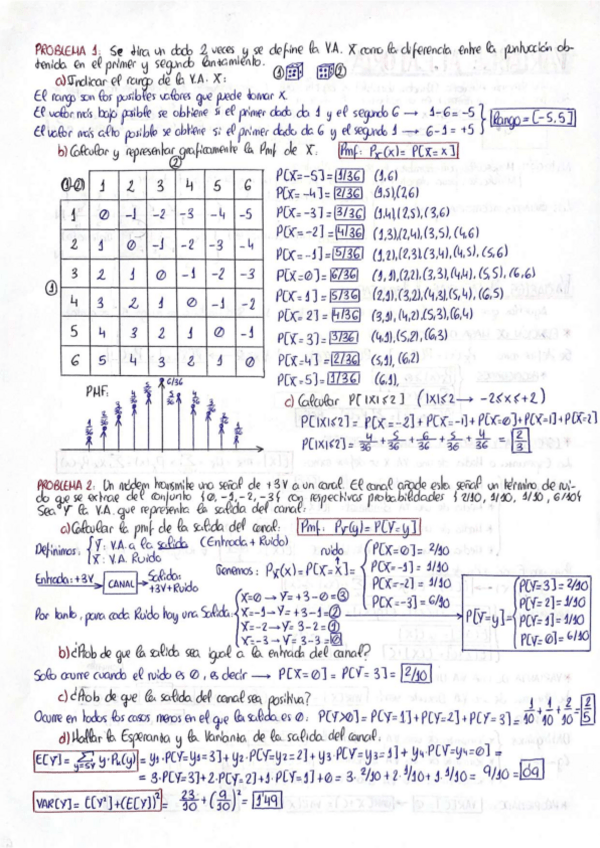 PROBLEMA 1: Se tira un dado 2 veces y se define la V.A. X como la diferencia entre la puntuación ob-
tenida en el primer y segundo lanzamiento. ① ②
a) Indicar el rango de la V.A. X:
El rango son los posibles valores que puede tomar X.
El valor más bajo posible se obtiene si el primer dado da 1 y el segundo 6 → 1-6 = -5
El valor más alto posible se obtiene si el primer dado da 6 y el segundo 1 → 6-1 = +5
Rango = [-5,5]
b) Calcular y representar graficamente la Pmf de X. Pmf: Px(x) = P[X=x]
②
①-② 1 2 3 4 5 6
1 0 -1 -2 -3 -4 -5
2 1 0 -1 -2 -3 -4
3 2 1 0 -1 -2 -3
① 4 3 2 1 0 -1 -2
5 4 3 2 1 0 -1
6 5 4 3 2 1 0
P[X=-5] = 1/36 (1,6)
P[X=-4] = 2/36 (1,5),(2,6)
P[X=-3] = 3/36 (1,4)(2,5),(3,6)
P[X=-2] = 4/36 (1,3)(2,4),(3,5),(4,6)
P[X=-1] = 5/36 (1,2),(2,3)(3,4),(4,5),(5,6)
P[X=0] = 6/36 (1,1),(2,2)(3,3),(4,4),(5,5),(6,6)
P[X=1] = 5/36 (2,1),(3,2),(4,3),(5,4),(6,5)
P[X=2] = 4/36 (3,1),(4,2),(5,3),(6,4)
P[X=3] = 3/36 (4,1),(5,2),(6,3)
P[X=4] = 2/36 (5,1),(6,2)
P[X=5] = 1/36 (6,1),
PMF:
1/36 2/36 3/36 4/36 5/36 6/36 5/36 4/36 3/36 2/36 1/36
c) Calcular P[|X|≤2] (|X|≤2 → -2≤x≤+2)
P[|X|≤2] = P[X=-2]+P[X=-1]+P[X=0]+P[X=1]+P[X=2]
P[|X|≤2] = 4/36 + 5/36 + 6/36 + 5/36 + 4/36 = 2/3
PROBLEMA 2: Un módem transmite una señal de +3V a un canal. El canal añade esta señal un término de rui-
do que se extrae del conjunto {0,-1,-2,-3} con respectivas probabilidades {2/10, 1/10, 1/10, 6/10}
Sea Y la V.A. que representa la salida del canal:
a) Calcular la pmf de la salida del canal: Pmf: Py(y) = P[Y=y]
Definimos: Y: V.A. a la salida (Entrada + Ruido)
X: V.A. Ruido
Entrada: +3V → CANAL → Salida: +3V+Ruido
ruido
Tenemos: Px(x) = P[X=x] =
P[X=0] = 2/10
P[X=-1] = 1/10
P[X=-2] = 1/10
P[X=-3] = 6/10
Por tanto, para cada Ruido hay una Salida:
X=0 → Y=+3-0 = ③
X=-1 → Y=+3-1 = ②
X=-2 → Y=3-2 = ①
X=-3 → Y=3-3 = ⓪
P[Y=y] =
P[Y=3] = 2/10
P[Y=2] = 1/10
P[Y=1] = 1/10
P[Y=0] = 6/10
b) ¿Prob de que la salida sea igual a la entrada del canal?
Solo ocurre cuando el ruido es 0, es decir → P[X=0] = P[Y=3] = 2/10
c) ¿Prob de que la salida del canal sea positiva?
Ocurre en todos los casos, menos en el que la salida es 0. P[Y>0] = P[Y=1]+P[Y=2]+P[Y=3] = 1/10 + 1/10 + 2/10 = 2/5
d) Hallar la Esperanza y la Varianza de la salida del canal.
E[Y] = Σ y·Py(y) = y₁·P[Y=y₁=3]+y₂·P[Y=y₂=2]+y₃·P[Y=y₃=1]+y₄·P[Y=y₄=0] =
= 3·P[Y=3]+2·P[Y=2]+1·P[Y=1]+0 = 3·2/10+2·1/10+1·1/10 = 9/10 = 0,9
VAR[Y] = E[Y²]+(E[Y])² = 23/10 + (9/10)² = 1'49